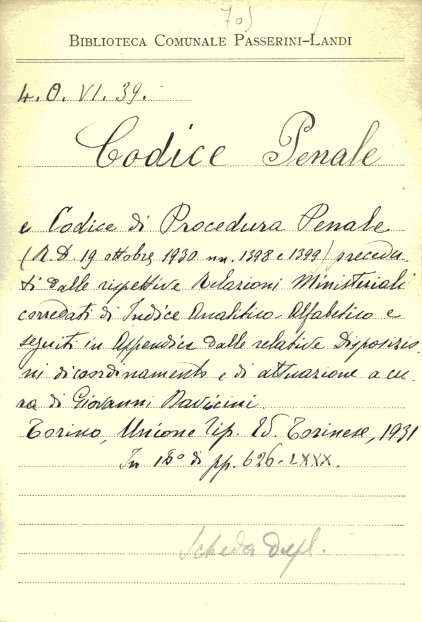 705
BIBLIOTECA COMUNALE PASSERINI-LANDI
4. O. VI. 39.
Codice Penale
e Codice di Procedura Penale
(R. D. 19 ottobre 1930 nn. 1398 e 1399) precedu-
ti dalle rispettive Relazioni Ministeriali
corredati di Indice Analitico-Alfabetico e
seguiti in Appendice dalle relative Disposizio-
ni di coordinamento e di attuazione a cu-
ra di Giovanni
Torino, Unione Tip. Ed. Torinese, 1931
In 18° di pp. 626-LXXX.
Scheda dupl.